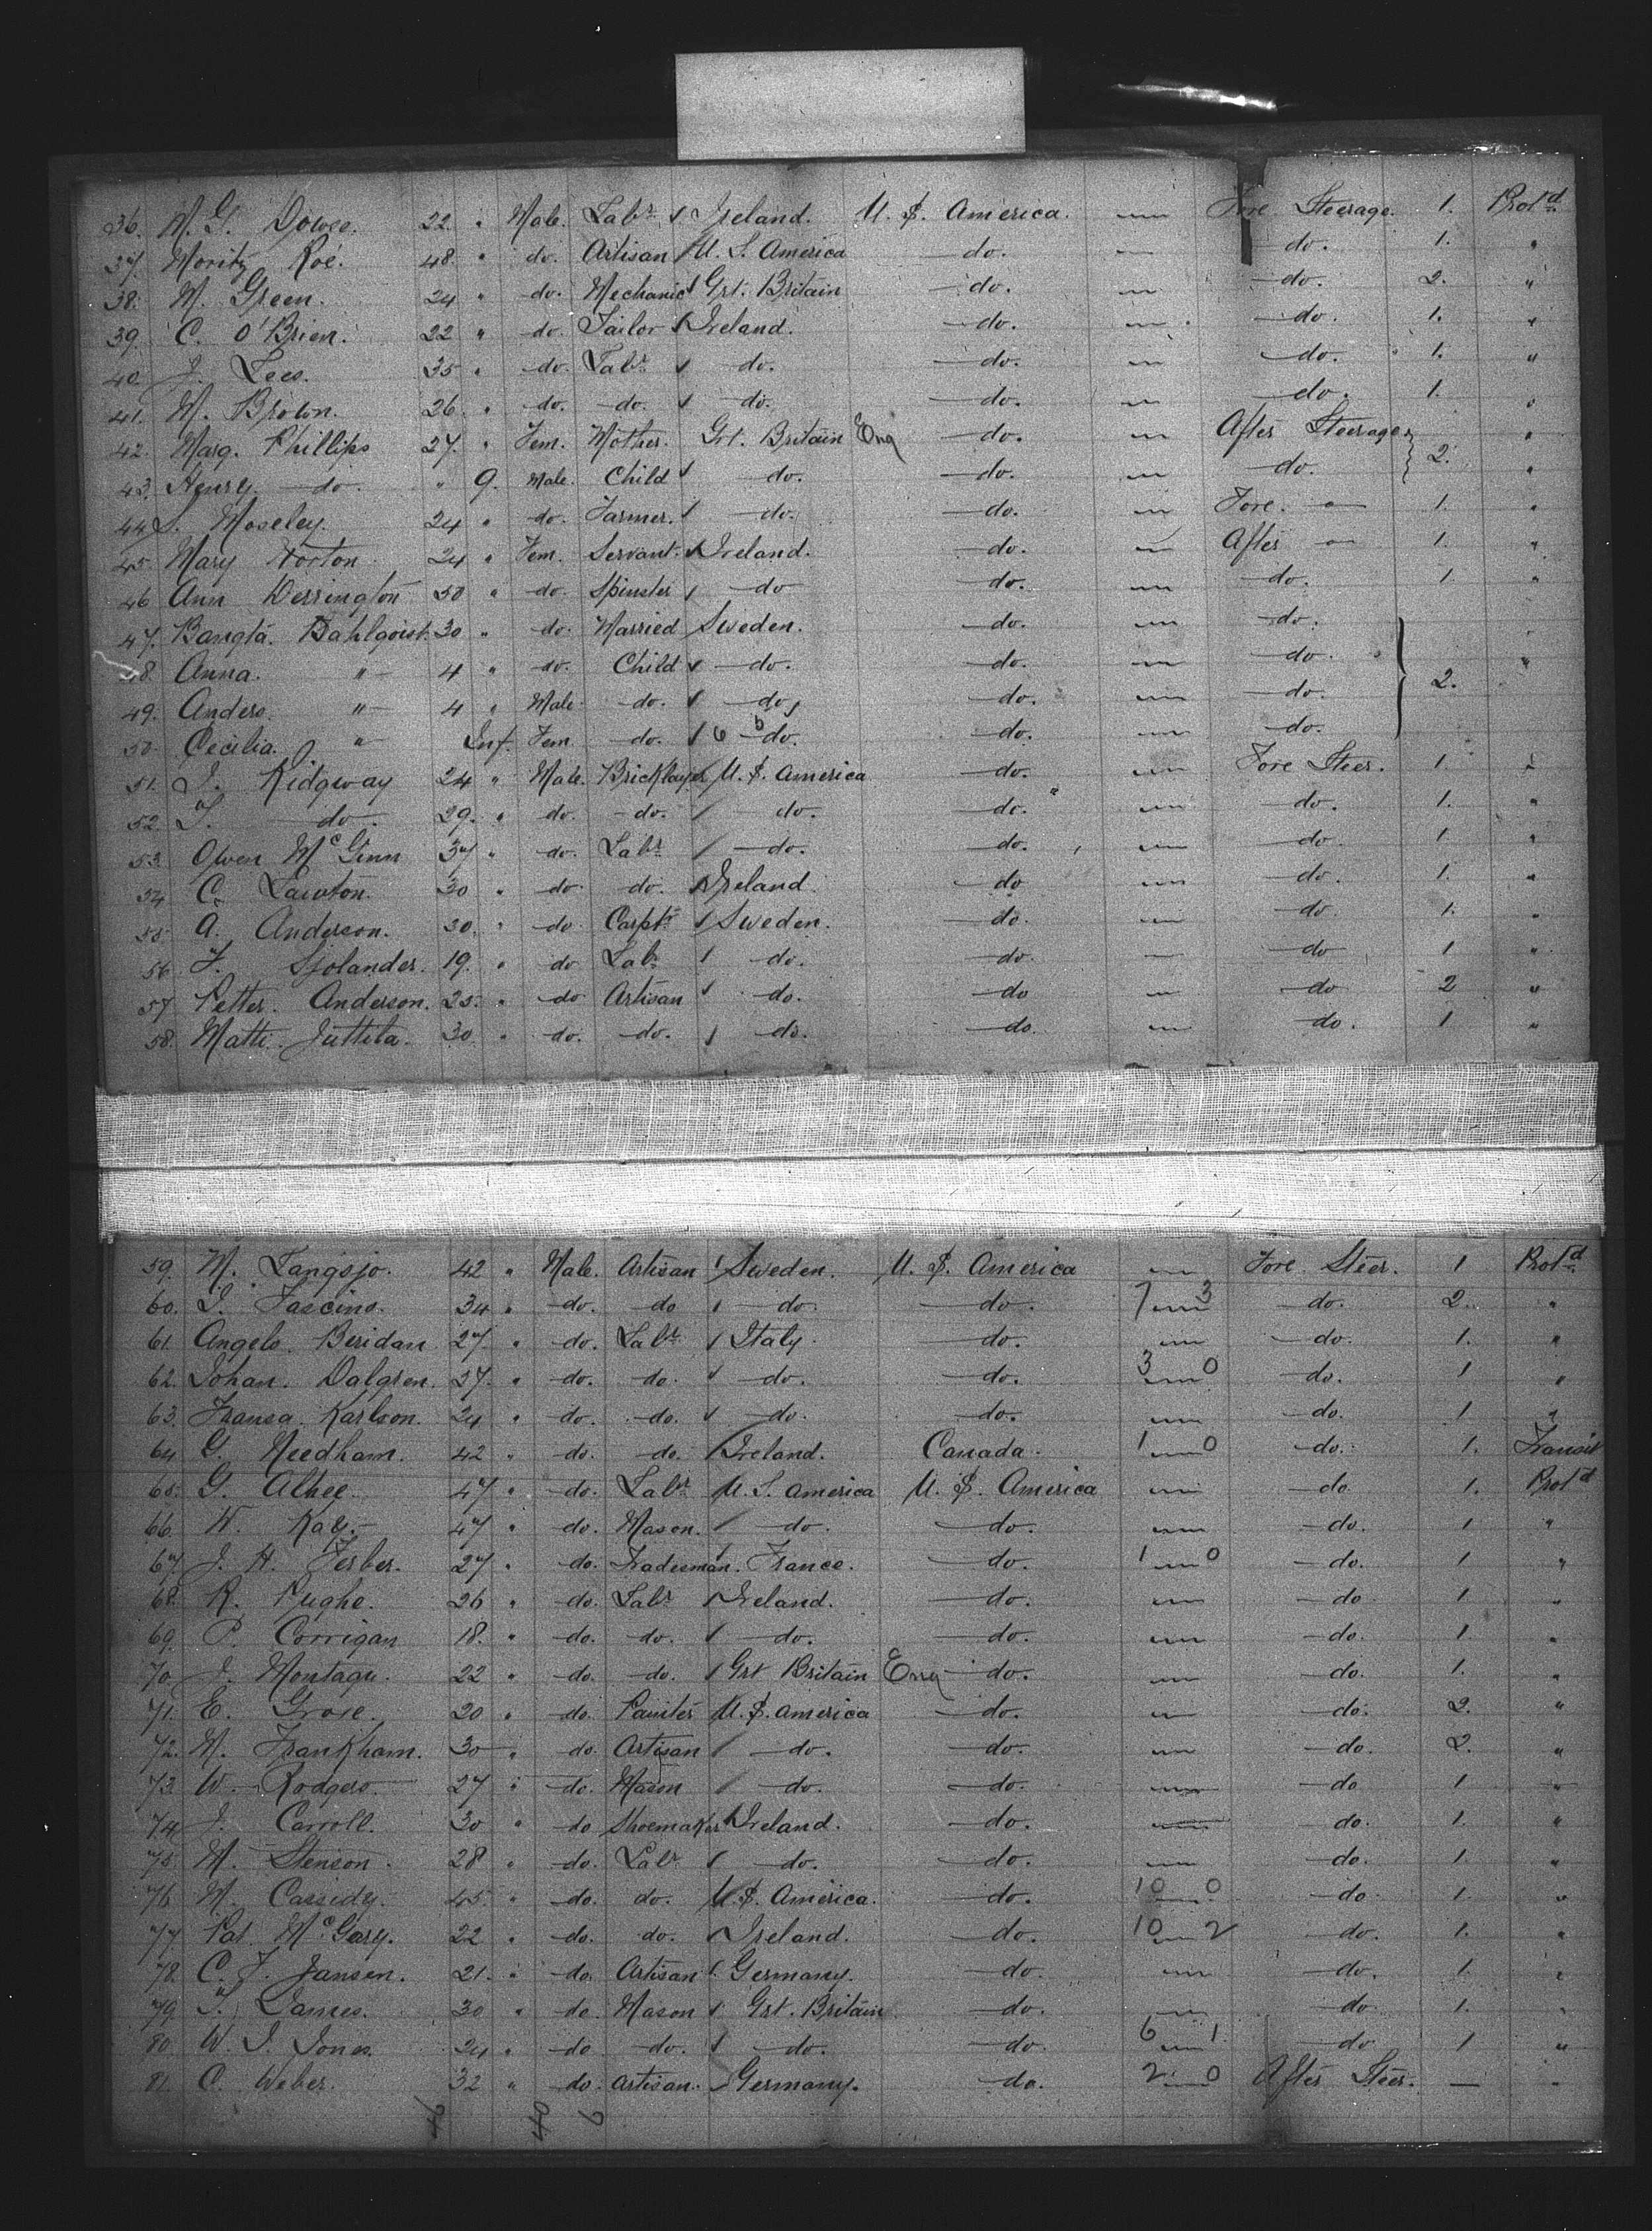 36. M. G. Dowee. 22. " Male. Labr Ireland. U. S. America. — Fore Steerage. 1. Protd
37. Moritz Roé. 48. " do. Artisan U. S. America do. — do. 1. "
38. M. Green. 24 " do. Mechanic Grt. Britain do. — do. 2. "
39. C. O'Brien. 22 " do. Tailor Ireland. do. — do. 1. "
40. J. Lees. 35 " do. Labr do. do. — do. 1. "
41. M. Brown. 26. " do. do. do. do. — do. 1. "
42. Marg. Phillips 27. " Fem. Mother. Grt. Britain Eng do. — After Steerage } 2. "
43. Henry do. " 9. Male. Child do. do. — do. "
44 S. Moseley. 24 " do. Farmer. do. do. — Fore. — 1. "
45. Mary Norton 24 " Fem. Servant. Ireland. do. — After — 1. "
46 Ann Derrington 50 " do. Spinster do do. — do. 1. "
47. Bangta. Dahlqoist. 30 " do. Married Sweden. do. — do. } 2. "
48. Anna. " 4 " do. Child do. do. — do. "
49. Anders. " 4 " Male. do. do, do. — do.
50. Cecilia. " Inf. Fem. do. 6 b do. do. — do.
51. J. Ridgway 24 " Male. Bricklayer U. S. America do. — Fore Steer. 1. "
52. T. do. 29. " do. do. do. do. — do. 1. "
53. Owen McGinn 37 " do. Labr do. do. — do. 1. "
54 C. Lawton. 30 " do. do. Ireland. do — do. 1. "
55 A. Anderson. 30. " do. Carptr Sweden. do. — do. 1. "
56. F. Sjolander. 19. " do Labr do. do. — do 1 "
57 Petter. Anderson. 25. " do Artisan do. do — do 2 "
58. Matti. Juttila. 30. " do. do. do. do. — do. 1 "
59. M. Langsjo. 42 " Male. Artisan Sweden. U. S. America — Fore Steer. 1 Protd
60. S. Fascino. 34 " do. do do. do. 7 — 3 do. 2. "
61. Angelo. Beridan 27. " do. Labr Italy. do. — do. 1. "
62. Johan. Dalgren. 37. " do. do. do. do. 3 — 0 do. 1 "
63. Fransa. Karlson. 24 " do. do. do. do. — do. 1 "
64 G. Needham. 42 " do. do. Ireland. Canada. 1 — 0 do. 1. Transit
65. G. Alhee. 47 " do. Labr U. S. America U. S. America — do. 1. Protd
66. W. Kay. 47 " do. Mason. do. do. — do. 1 "
67. J. H. Ferber. 27 " do. Tradesman. France. do. 1 — 0 do. 1 "
68. R. Pughe. 26 " do. Labr Ireland. do. — do. 1 "
69. P. Corrigan 18. " do. do. do. do. — do. 1. "
70. J. Montagu. 22 " do. do. Grt Britain Eng do. — do. 1. "
71. E. Grose. 20 " do. Painter U. S. America do. — do. 2. "
72. M. Frankham. 30 " do. Artisan do. do. — do. 2. "
73. W. Rodgers. 27 " do. Mason do. do. — do 1 "
74. J. Carroll. 30 " do Shoemaker Ireland. do. — do. 1. "
75. M. Stenson. 28 " do. Labr do. do. — do. 1. "
76. M. Cassidy. 45. " do. do. U. S. America. do. 10 — 0 do. 1. "
77. Pat. McGary. 22 " do. do. Ireland. do. 10 — 2 do. 1. "
78. C. F. Jansen. 21. " do. Artisan Germany. do. — do. 1. "
79. T. James. 30 " do Mason Grt. Britain do. — do. 1. "
80. W. J. Jones. 24 " do do. do. do. 6 — 1 do. 1 "
81. C. Weber. 32 " do. Artisan. Germany. do. 2 — 0 After Steer. — "
46 40 6